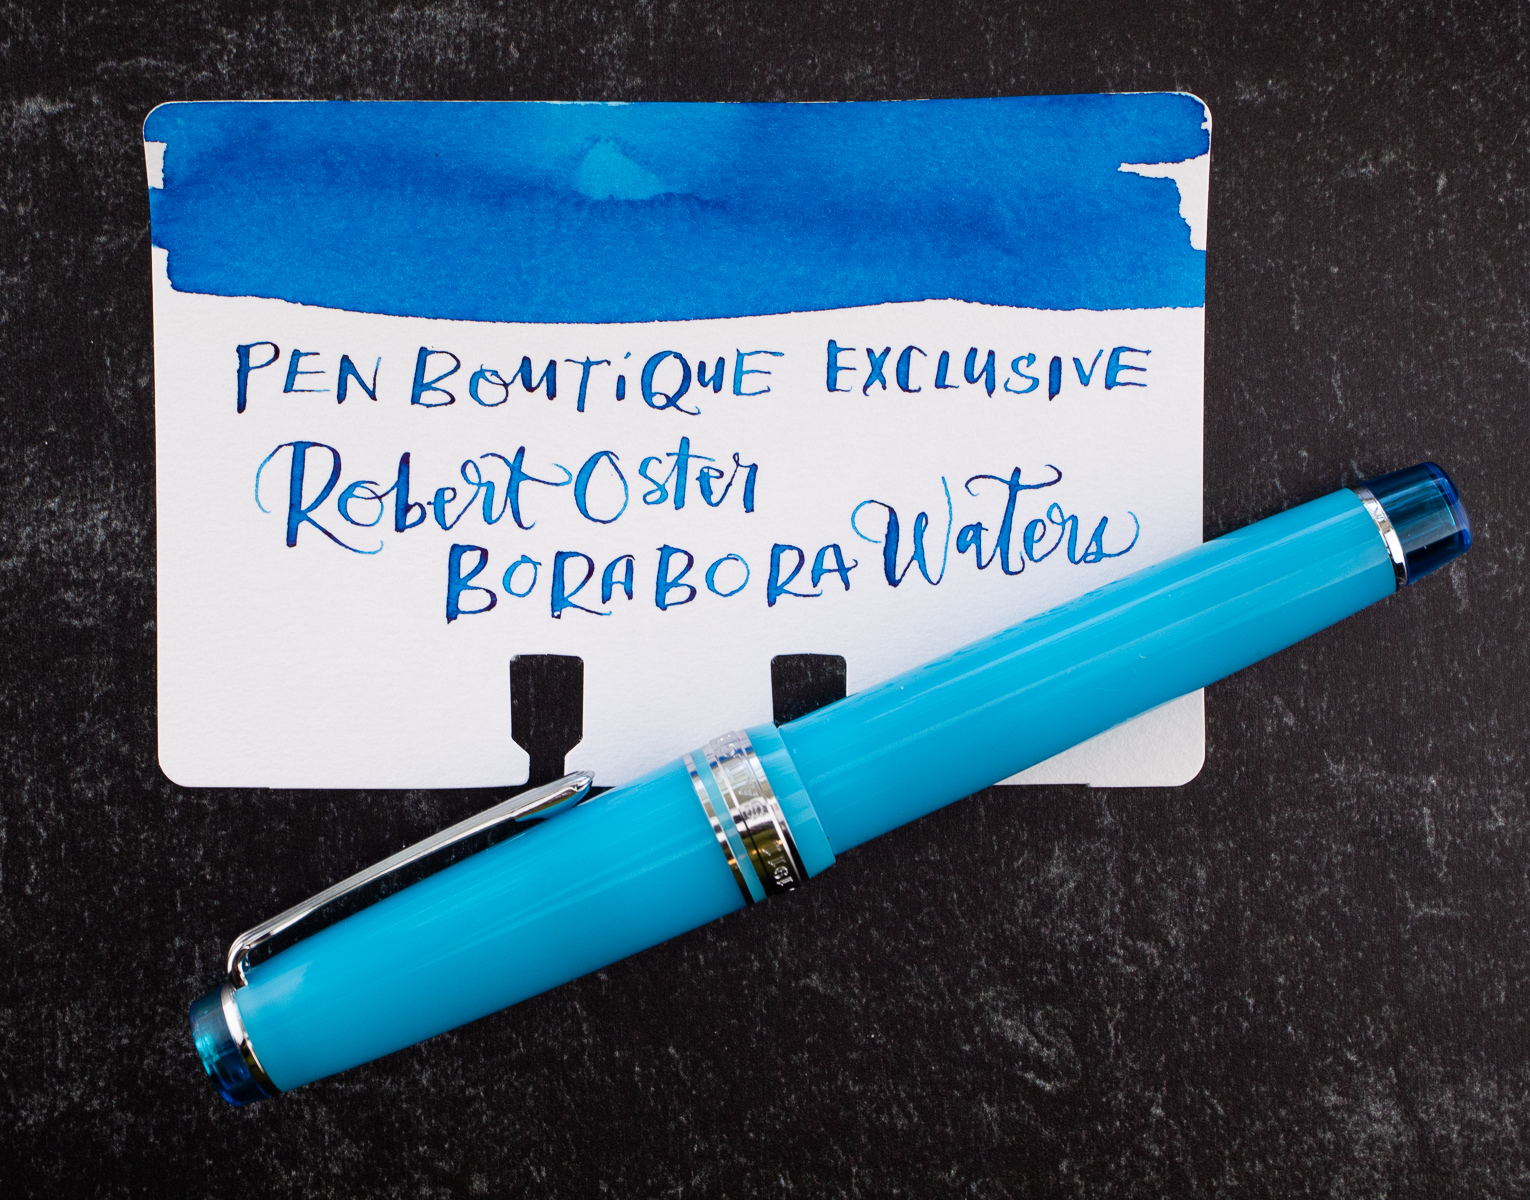 PEN BOUTiQUE EXCLUSIVE
Robert Oster
BORA BORA Waters